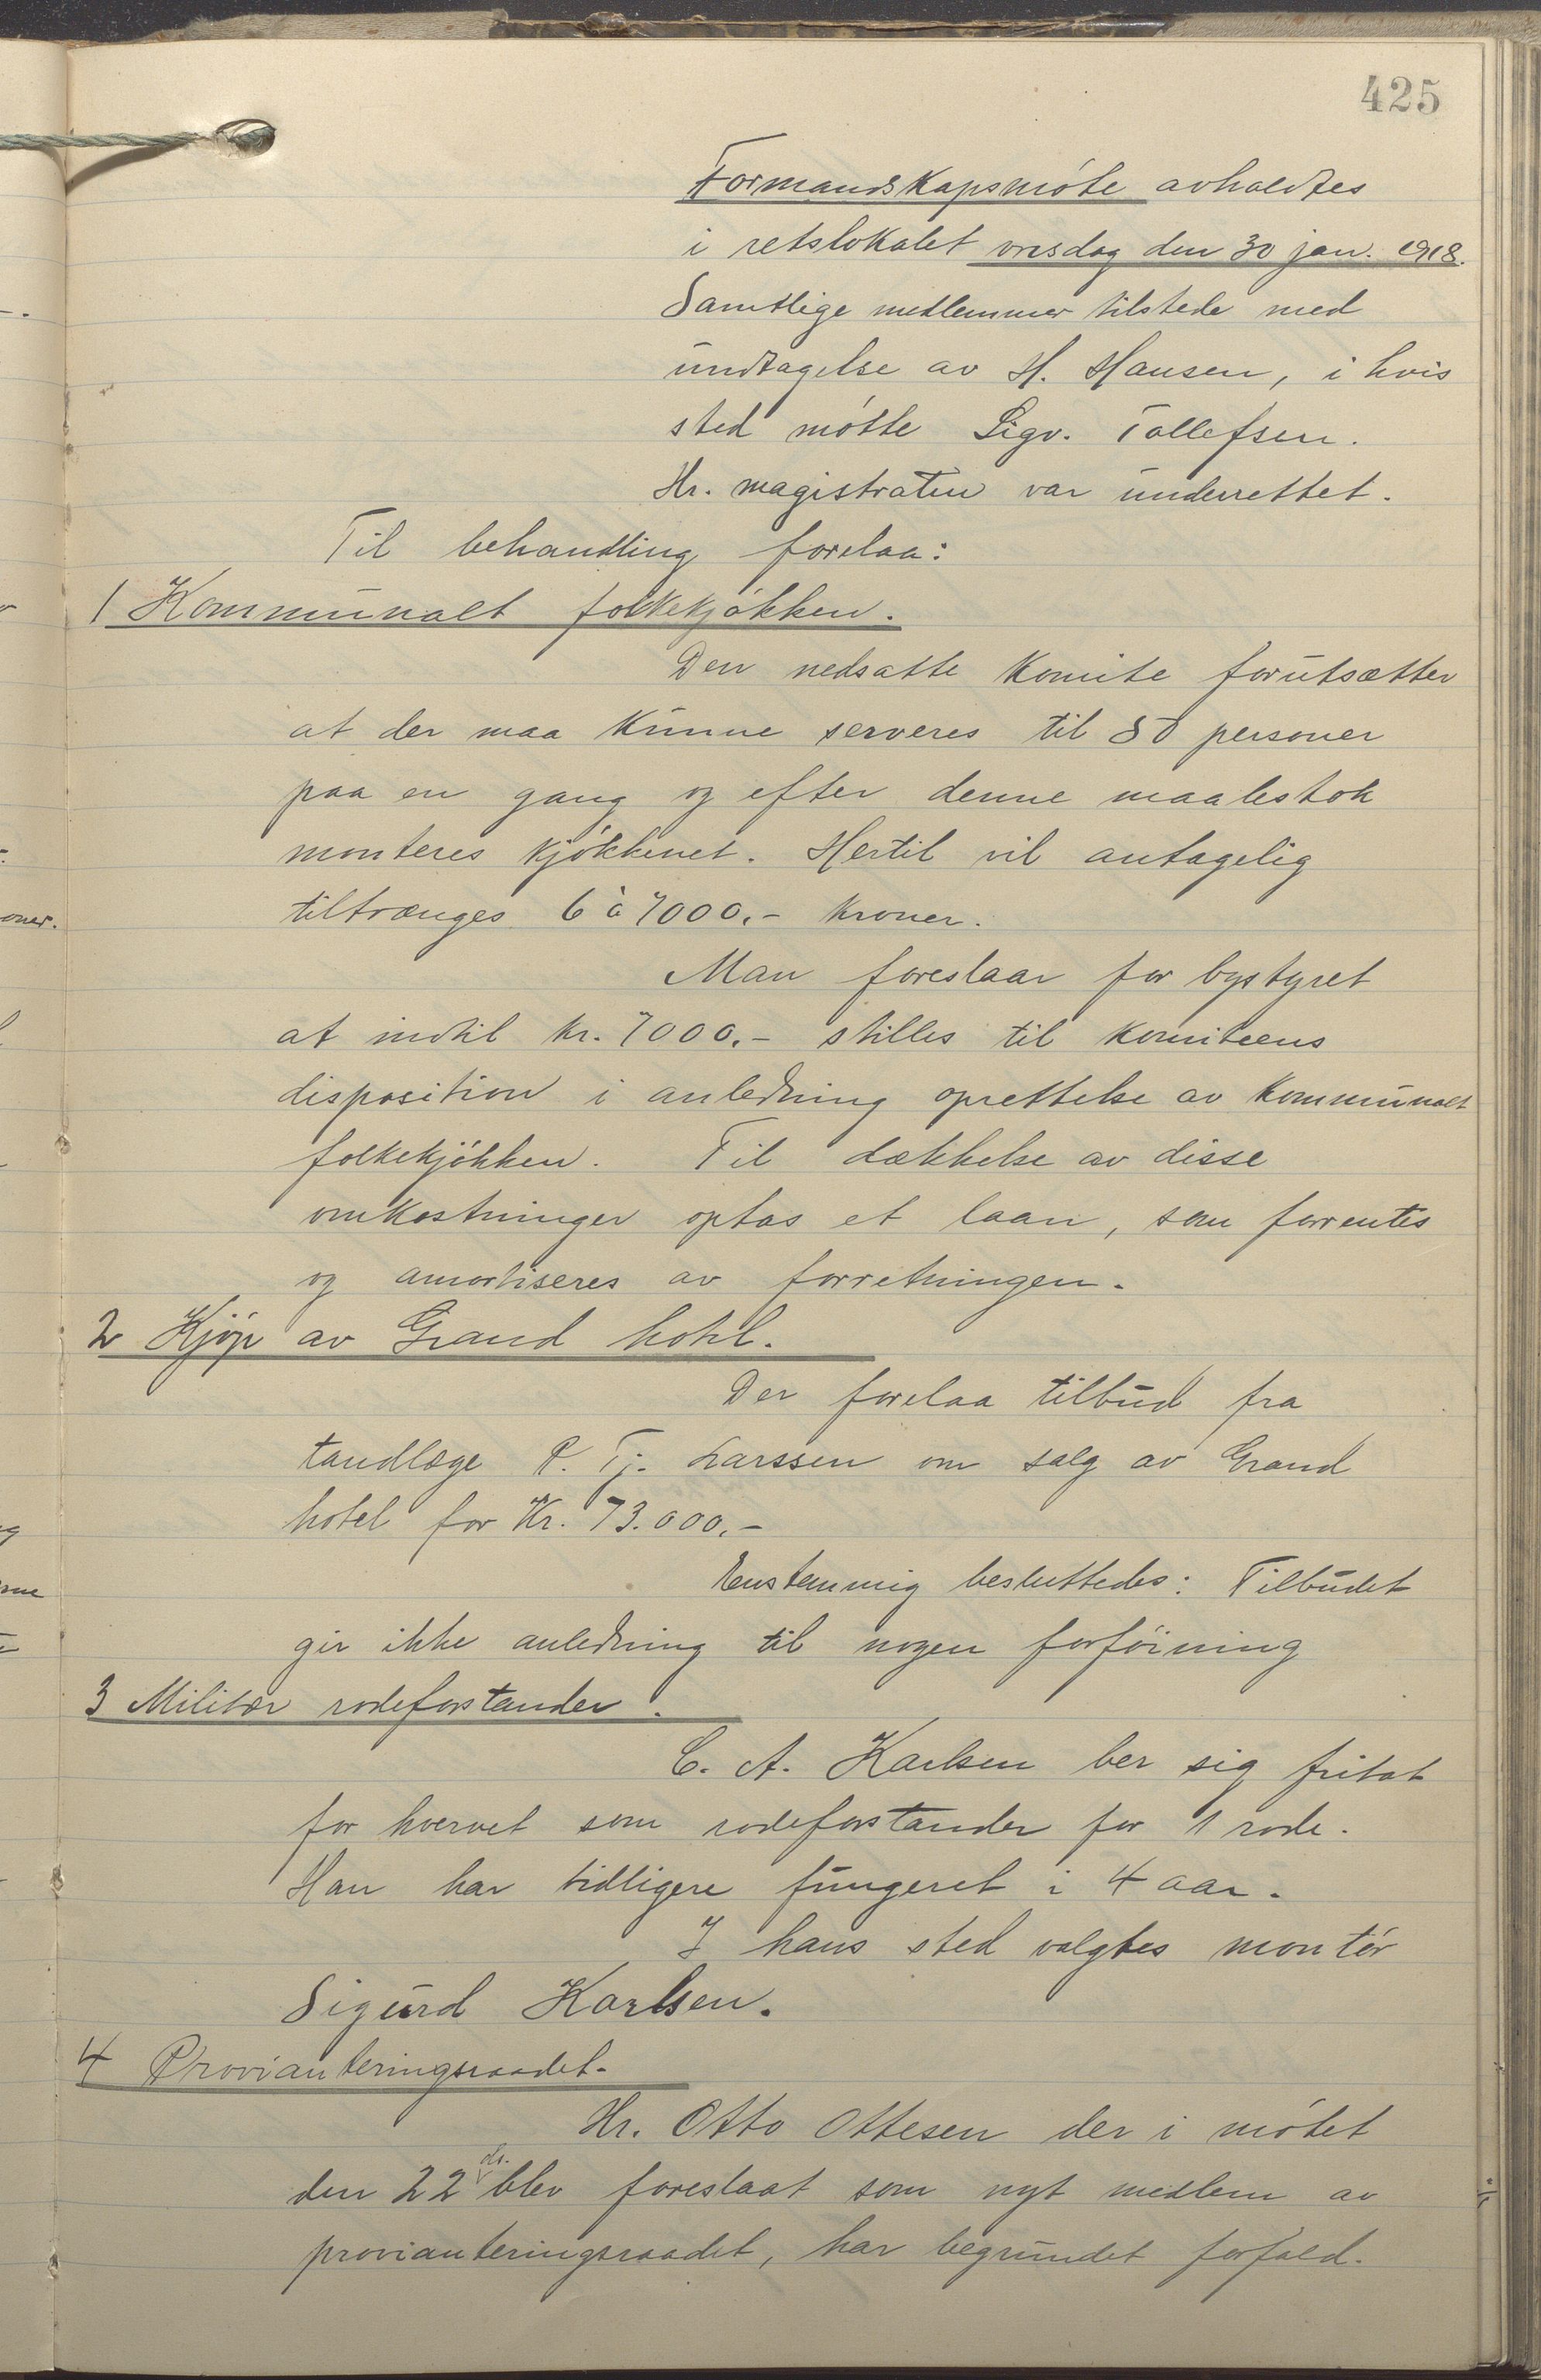 425
Formandskapsmöte avholdtes
i retslokalet onsdag den 30 jan. 1918.
Samtlige medlemmer tilstede med
undtagelse av H. Hansen, i hvis
sted mötte Sigv. Tollefsen.
Hr. magistraten var underrettet.
Til behandling forelaa:
1 Kommunalt folkekjökken.
Den nedsatte komite forutsætter
at der maa kunne serveres til 50 personer
paa en gang og efter denne maalestok
monteres kjökkenet. Hertil vil antagelig
tiltrænges 6 à 7000.- kroner.
Man foreslaar for bystyret
at indtil kr. 7000.- stilles til komiteens
disposition i anledning oprettelse av kommunalt
folkekjökken. Til dækkelse av disse
omkostninger optas et laan, som forrentes
og amortiseres av forretningen.
2 Kjöp av Grand hotel.
Der forelaa tilbud fra
tandlæge P. Tj. Larssen om salg av Grand
hotel for Kr. 73.000.-
Enstemmig besluttedes: Tilbudet
gir ikke anledning til nogen forföining
3 Militær rodeforstander.
C. A. Karlsen ber sig fritat
for hvervet som rodeforstander for 1 rode.
Han har tidligere fungeret i 4 aar.
I hans sted valgtes montör
Sigurd Karlsen.
4 Provianteringsraadet.
Hr. Otto Ottesen der i mötet
den 22 ds. blev foreslaat som nyt medlem av
provianteringsraadet, har begrundet forfald.